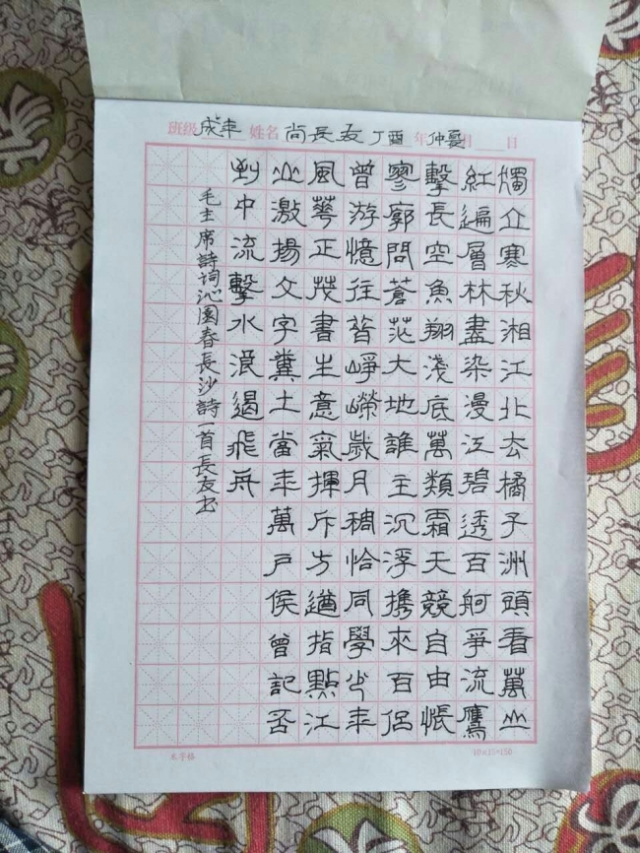 班级 成年 姓名 尚長友 丁酉 年 仲夏 月 日
獨立寒秋湘江北去橘子洲頭看萬山
紅遍層林盡染漫江碧透百舸爭流鷹
擊長空魚翔淺底萬類霜天競自由悵
寥廓問蒼茫大地誰主沉浮攜來百侶
曾游憶往昔崢嶸歲月稠恰同學少年
風華正茂書生意氣揮斥方遒指點江
山激揚文字糞土當年萬戶侯曾記否
到中流擊水浪遏飛舟
毛主席詩詞沁園春長沙詩一首長友书
米字格 10×15=150